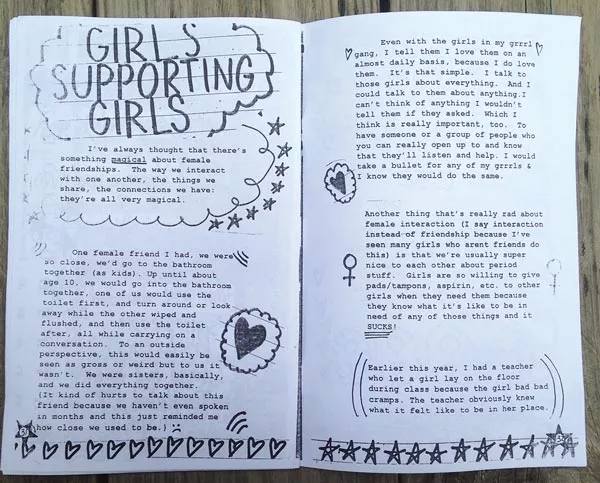 GIRLS
SUPPORTING
GIRLS
I've always thought that there's
something magical about female
friendships. The way we interact
with one another, the things we
share, the connections we have:
they're all very magical.
One female friend I had, we were
so close, we'd go to the bathroom
together (as kids). Up until about
age 10, we would go into the bathroom
together, one of us would use the
toilet first, and turn around or look
away while the other wiped and
flushed, and then use the toilet
after, all while carrying on a
conversation. To an outside
perspective, this would easily be
seen as gross or weird but to us it
wasn't. We were sisters, basically,
and we did everything together.
(It kind of hurts to talk about this
friend because we haven't even spoken
in months and this just reminded me
how close we used to be.) :(
Even with the girls in my grrrl
gang, I tell them I love them on an
almost daily basis, because I do love
them. It's that simple. I talk to
those girls about everything. And I
could talk to them about anything.I
can't think of anything I wouldn't
tell them if they asked. Which I
think is really important, too. To
have someone or a group of people who
you can really open up to and know
that they'll listen and help. I would
take a bullet for any of my grrrls &
I know they would do the same.
Another thing that's really rad about
female interaction (I say interaction
instead of friendship because I've
seen many girls who arent friends do
this) is that we're usually super
nice to each other about period
stuff. Girls are so willing to give
pads/tampons, aspirin, etc. to other
girls when they need them because
they know what it's like to be in
need of any of those things and it
SUCKS!
Earlier this year, I had a teacher
who let a girl lay on the floor
during class because the girl bad bad
cramps. The teacher obviously knew
what it felt like to be in her place.